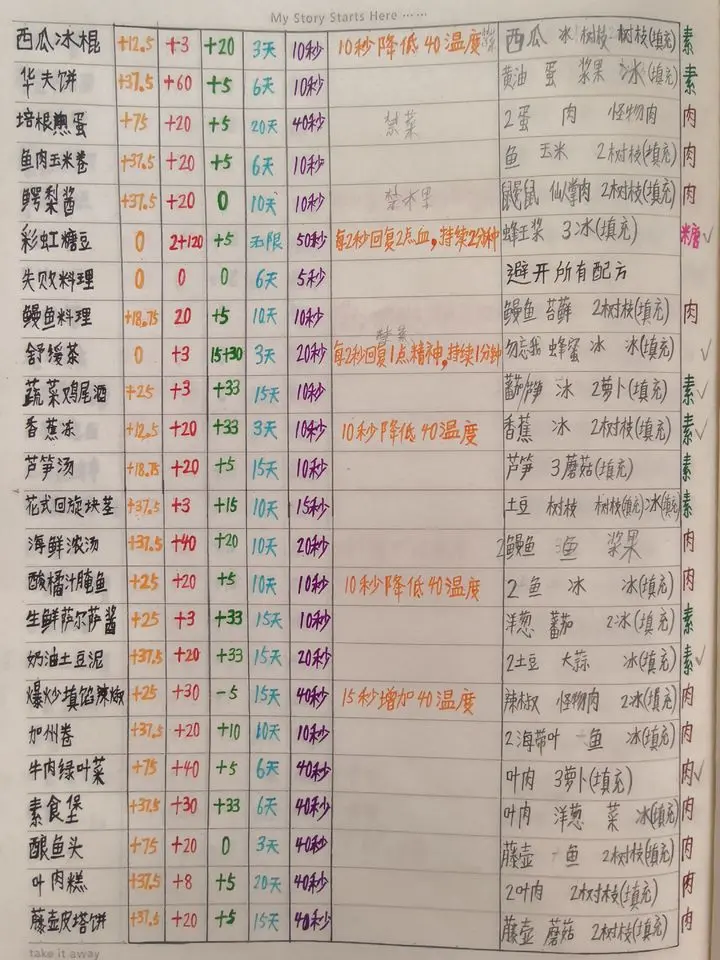 My Story Starts Here ……
西瓜冰棍 +12.5 +3 +20 3天 10秒 10秒降低40温度 西瓜 冰 树枝 树枝(填充) 素
华夫饼 +37.5 +60 +5 6天 10秒 黄油 蛋 浆果 冰(填充) 素
培根煎蛋 +75 +20 +5 20天 40秒 禁菜 2蛋 肉 怪物肉 肉
鱼肉玉米卷 +37.5 +20 +5 6天 10秒 鱼 玉米 2树枝(填充) 肉
鳄梨酱 +37.5 +20 0 10天 10秒 禁水果 鼹鼠 仙掌肉 2树枝(填充) 肉
彩虹糖豆 0 2+120 +5 无限 50秒 每2秒回复2点血,持续2分钟 蜂王浆 3冰(填充) 糖✓
失败料理 0 0 0 6天 5秒 避开所有配方
鳗鱼料理 +18.75 20 +5 10天 10秒 鳗鱼 苔藓 2树枝(填充) 肉
舒缓茶 0 +3 15+30 3天 20秒 每2秒回复1点精神,持续1分钟 勿忘我 蜂蜜 冰 冰(填充) ✓
蔬菜鸡尾酒 +25 +3 +33 15天 10秒 蕃茄/笋 冰 2萝卜(填充) 素✓
香蕉冻 +12.5 +20 +33 3天 10秒 10秒降低40温度 香蕉 冰 2树枝(填充) 素✓
芦笋汤 +18.75 +20 +5 15天 10秒 芦笋 3蘑菇(填充) 素
花式回旋块茎 +37.5 +3 +15 10天 15秒 土豆 树枝 树枝(填充)冰(填充) 素
海鲜浓汤 +37.5 +40 +20 10天 20秒 2鳗鱼 鱼 浆果 肉
酸橘汁腌鱼 +25 +20 +5 10天 10秒 10秒降低40温度 2鱼 冰 冰(填充) 肉
生鲜萨尔萨酱 +25 +3 +33 15天 10秒 洋葱 蕃茄 2冰(填充) 素
奶油土豆泥 +37.5 +20 +33 15天 20秒 2土豆 大蒜 冰(填充) 素✓
爆炒填馅辣椒 +25 +30 -5 15天 40秒 15秒增加40温度 辣椒 怪物肉 2冰(填充) 肉
加州卷 +37.5 +20 +10 10天 10秒 2海带叶 鱼 冰(填充) 肉
牛肉绿叶菜 +75 +40 +5 6天 40秒 叶肉 3萝卜(填充) 肉✓
素食堡 +37.5 +30 +33 6天 40秒 叶肉 洋葱 菜 冰(填充) 肉
酿鱼头 +75 +20 0 3天 40秒 藤壶 鱼 2树枝(填充) 肉
叶肉糕 +37.5 +8 +5 20天 40秒 2叶肉 2树枝(填充) 肉
藤壶皮塔饼 +37.5 +20 +5 15天 40秒 藤壶 蘑菇 2树枝(填充) 肉
take it away